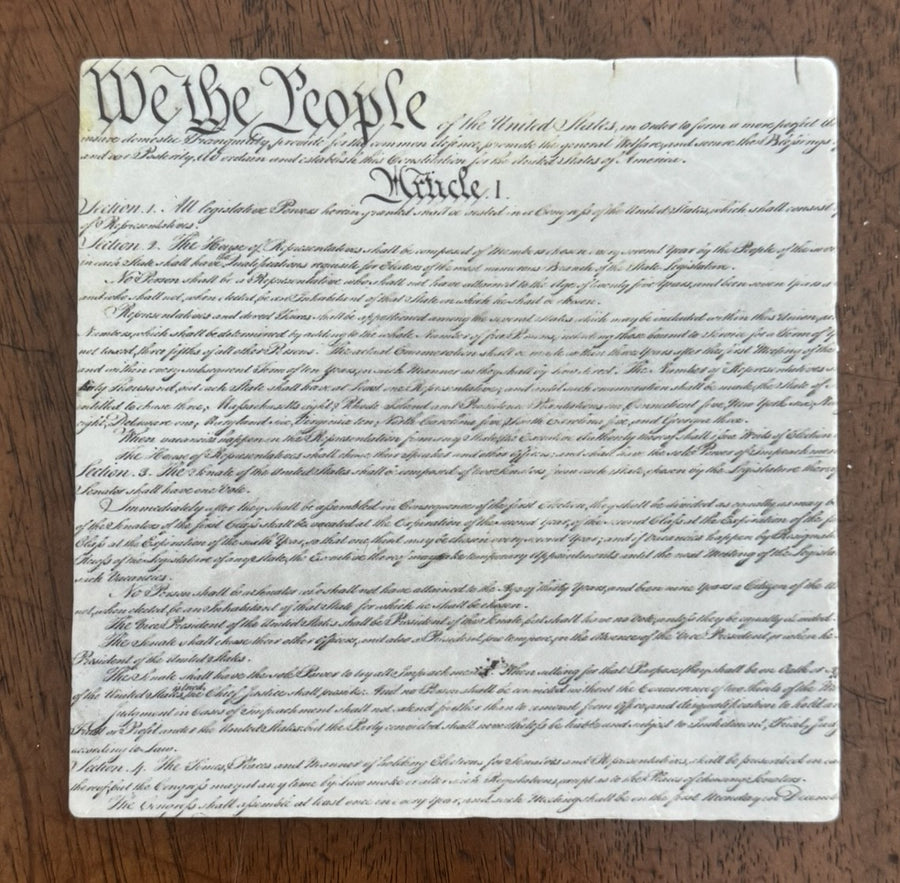 We the People of the United States, in Order to form a more perfect
insure domestic Tranquility, provide for the common defence, promote the general Welfare, and secure the Blessings
and our Posterity, do ordain and establish this Constitution for the United States of America.
Article. I.
Section. 1. All legislative Powers herein granted shall be vested in a Congress of the United States, which shall consist
of Representatives.
Section. 2. The House of Representatives shall be composed of Members chosen every second Year by the People of the
in each State shall have the Qualifications requisite for Electors of the most numerous Branch of the State Legislature.
No Person shall be a Representative who shall not have attained to the Age of twenty five Years, and been seven Years a
and who shall not, when elected, be an Inhabitant of that State in which he shall be chosen.
Representatives and direct Taxes shall be apportioned among the several States which may be included within this Union,
Numbers, which shall be determined by adding to the whole Number of free Persons, including those bound to Service for a Term of
not taxed, three fifths of all other Persons. The actual Enumeration shall be made within three Years after the first Meeting of the
and within every subsequent Term of ten Years, in such Manner as they shall by Law direct. The Number of Representatives
thirty Thousand, but each State shall have at Least one Representative; and until such enumeration shall be made, the State of
entitled to chuse three, Massachusetts eight, Rhode Island and Providence Plantations one, Connecticut five, New York six,
eight, Delaware one, Maryland six, Virginia ten, North Carolina five, South Carolina five, and Georgia three.
When vacancies happen in the Representation from any State, the Executive Authority thereof shall issue Writs of Election
The House of Representatives shall chuse their Speaker and other Officers; and shall have the sole Power of Impeachment
Section. 3. The Senate of the United States shall be composed of two Senators from each State, chosen by the Legislature thereof
Senator shall have one Vote.
Immediately after they shall be assembled in Consequence of the first Election, they shall be divided as equally as may
of the Senators of the first Class shall be vacated at the Expiration of the second Year, of the second Class at the Expiration of the
Class at the Expiration of the sixth Year, so that one third may be chosen every second Year; and if Vacancies happen by
Recess of the Legislature of any State, the Executive thereof may make temporary Appointments until the next Meeting of the
such Vacancies.
No Person shall be a Senator who shall not have attained to the Age of thirty Years, and been nine Years a Citizen of the
not, when elected, be an Inhabitant of that State for which he shall be chosen.
The Vice President of the United States shall be President of the Senate, but shall have no Vote, unless they be equally divided.
The Senate shall chuse their other Officers, and also a President pro tempore, in the Absence of the Vice President, or when he
President of the United States.
The Senate shall have the sole Power to try all Impeachments. When sitting for that Purpose, they shall be on Oath or
of the United States is tried, the Chief Justice shall preside: And no Person shall be convicted without the Concurrence of two thirds of the
Judgment in Cases of Impeachment shall not extend further than to removal from Office, and disqualification to hold
Trust or Profit under the United States: but the Party convicted shall nevertheless be liable and subject to Indictment, Trial,
according to Law.
Section. 4. The Times, Places and Manner of holding Elections for Senators and Representatives, shall be prescribed in
thereof; but the Congress may at any time by Law make or alter such Regulations, except as to the Places of chusing Senators.
The Congress shall assemble at least once in every Year, and such Meeting shall be on the first Monday in